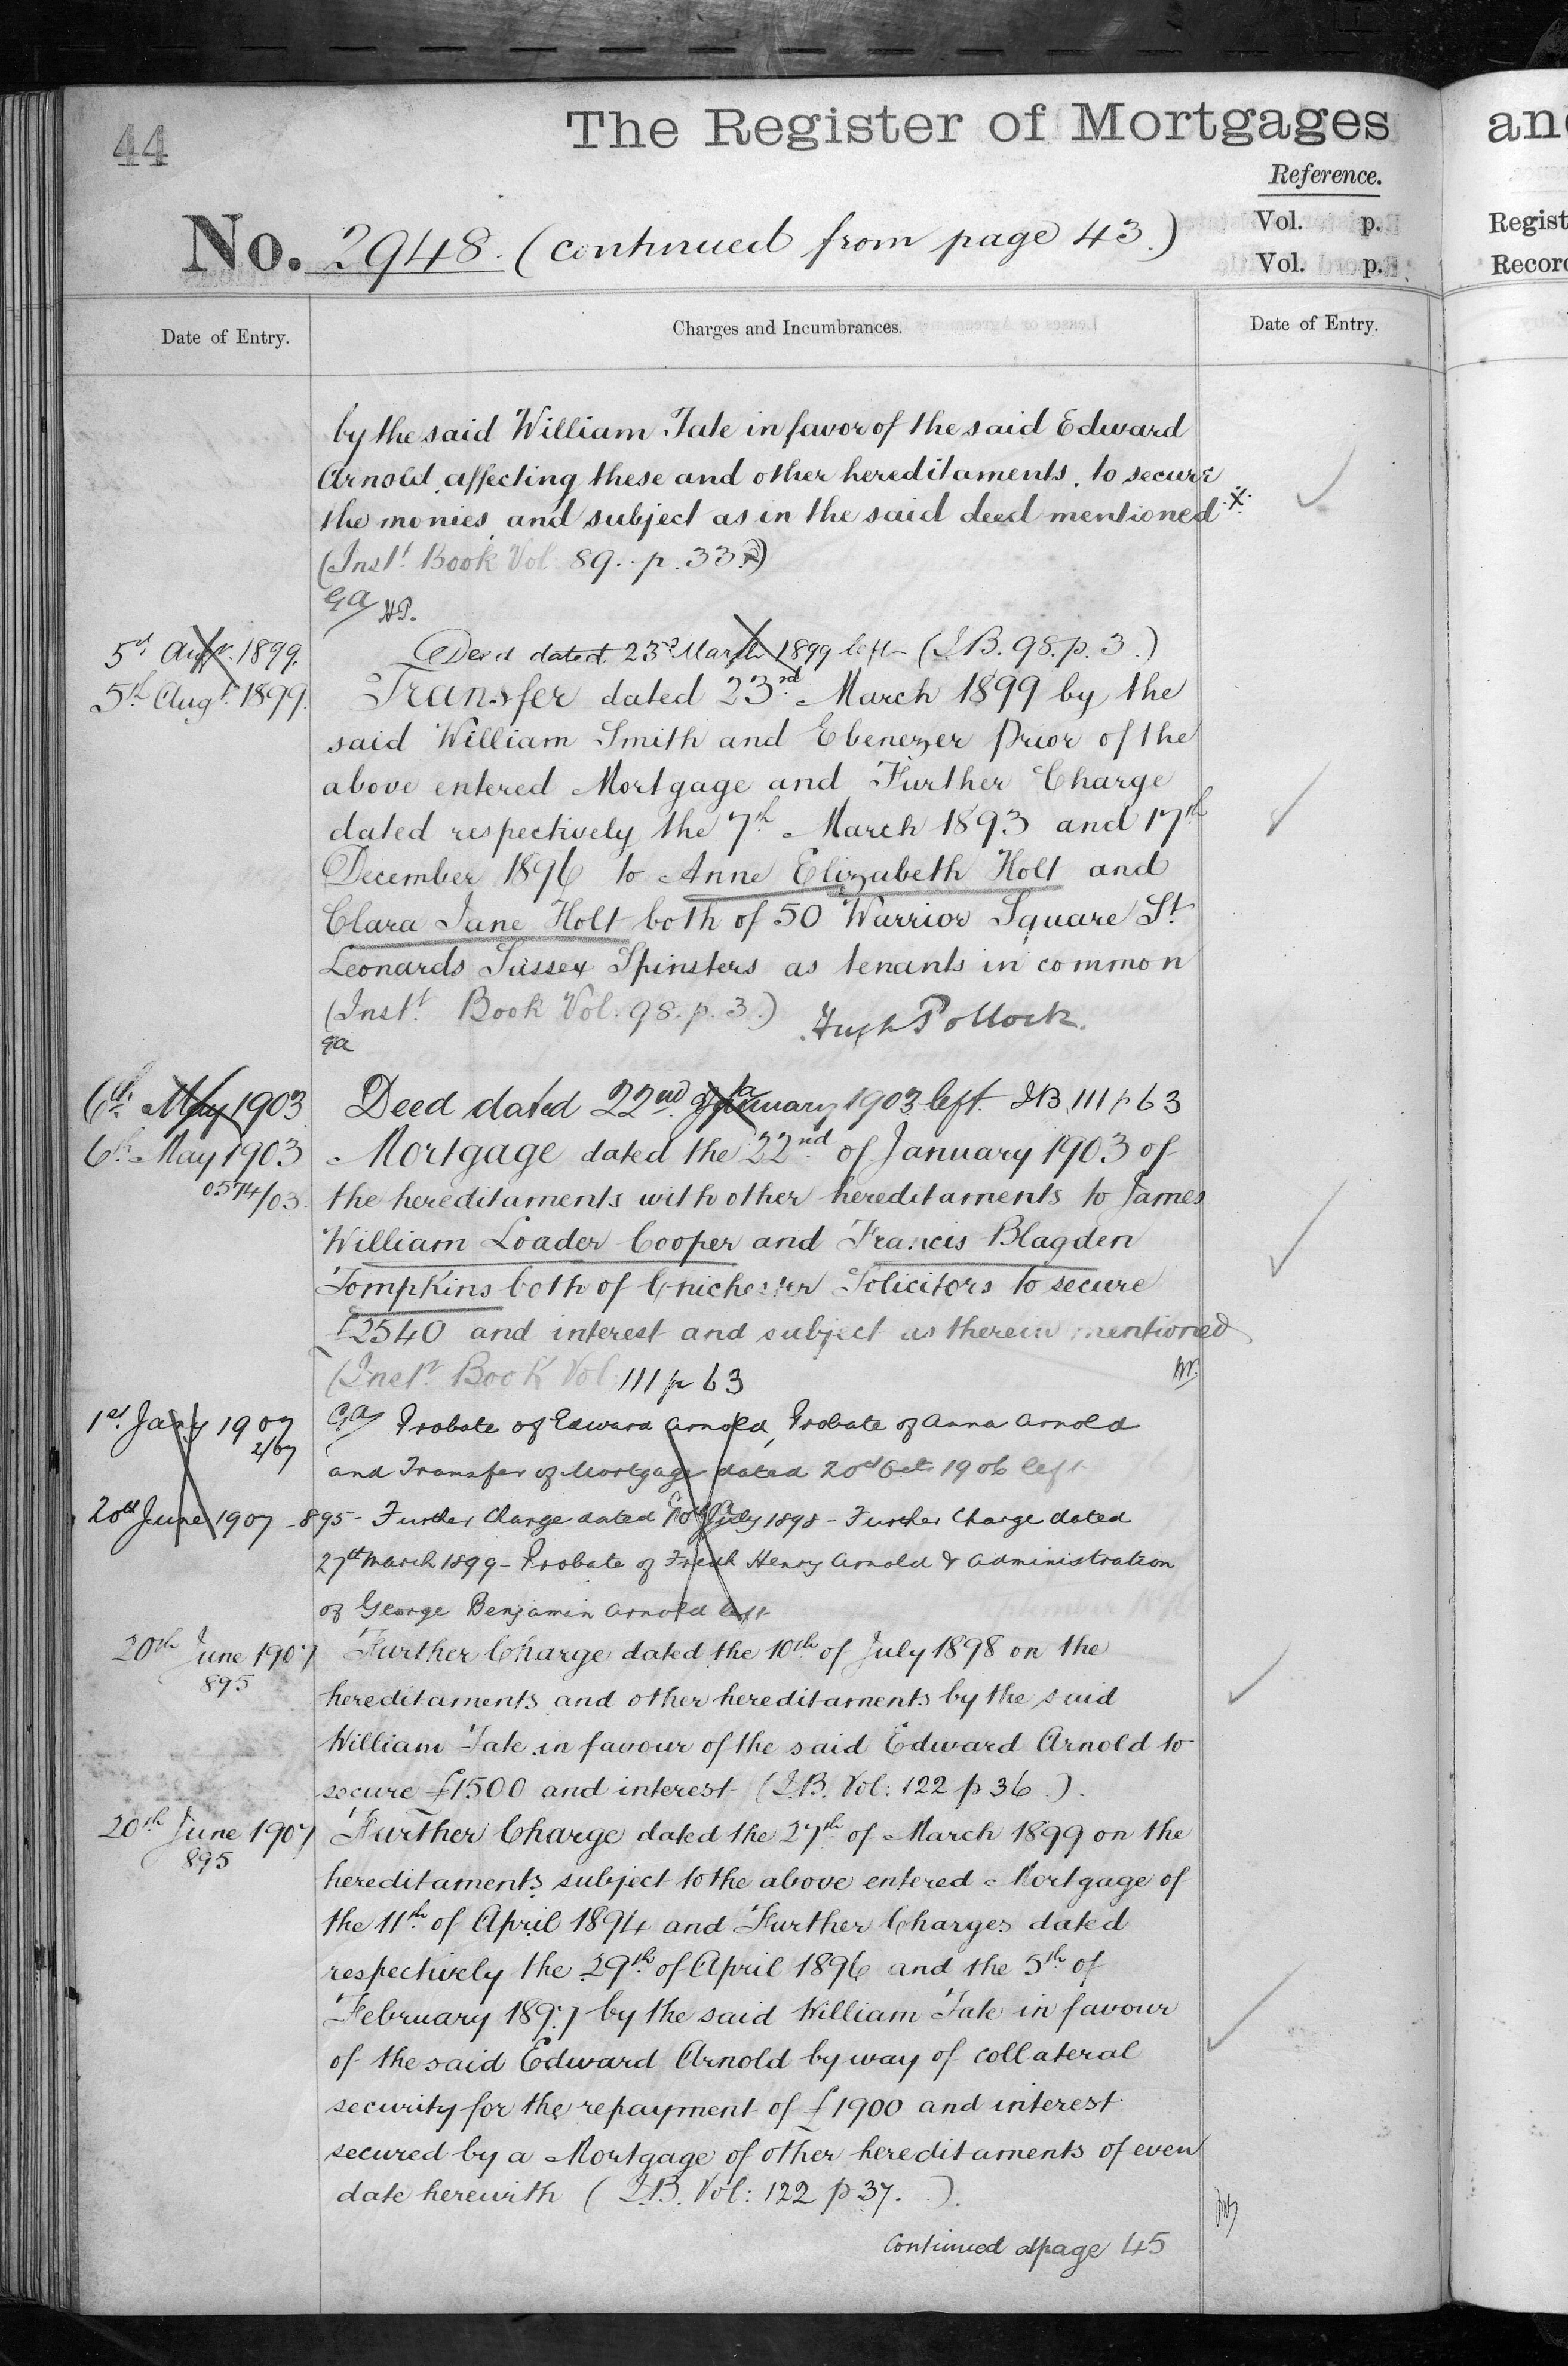 44
The Register of Mortgages
Reference.
No. 2948. (continued from page 43.)
Vol. p.
Vol. p.
Date of Entry.
Charges and Incumbrances.
Date of Entry.
by the said William Tate in favor of the said Edward
Arnold affecting these and other hereditaments, to secure
the monies and subject as in the said deed mentioned
(Inst. Book Vol. 89. p. 33.)
GA HP.
5th Augt. 1899. Deed dated 23rd March 1899 left (I.B. 98. p. 3.)
5th Augt. 1899. Transfer dated 23rd March 1899 by the
said William Smith and Ebenezer Prior of the
above entered Mortgage and Further Charge
dated respectively the 7th March 1893 and 17th
December 1896 to Anne Elizabeth Holt and
Clara Jane Holt both of 50 Warrior Square St
Leonards Sussex Spinsters as tenants in common
(Inst. Book Vol. 98. p. 3.) Hugh Pollock.
GA
6th May 1903 Deed dated 22nd January 1903 left IB 111 p 63
6th May 1903 Mortgage dated the 22nd of January 1903 of
0574/03 the hereditaments with other hereditaments to James
William Loader Cooper and Francis Blagden
Tompkins both of Chichester Solicitors to secure
£2540 and interest and subject as therein mentioned
(Inst. Book Vol 111 p 63
1st Jany 1907 GA Probate of Edward Arnold, Probate of Anna Arnold
2/07 and Transfer of Mortgage dated 20th Oct 1906 left
20th June 1907 - 895 - Further Charge dated 10th July 1898 - Further Charge dated
27th March 1899 - Probate of Fredk Henry Arnold & Administration
of George Benjamin Arnold left
20th June 1907 Further Charge dated the 10th of July 1898 on the
895
hereditaments and other hereditaments by the said
William Tate in favour of the said Edward Arnold to
secure £1500 and interest (I.B. Vol: 122 p 36.).
20th June 1907 Further Charge dated the 27th of March 1899 on the
895
hereditaments subject to the above entered Mortgage of
the 11th of April 1894 and Further Charges dated
respectively the 29th of April 1896 and the 5th of
February 1897 by the said William Tate in favour
of the said Edward Arnold by way of collateral
security for the repayment of £1900 and interest
secured by a Mortgage of other hereditaments of even
date herewith (I.B. Vol: 122 p 37.).
Continued at page 45
an
Regist
Record